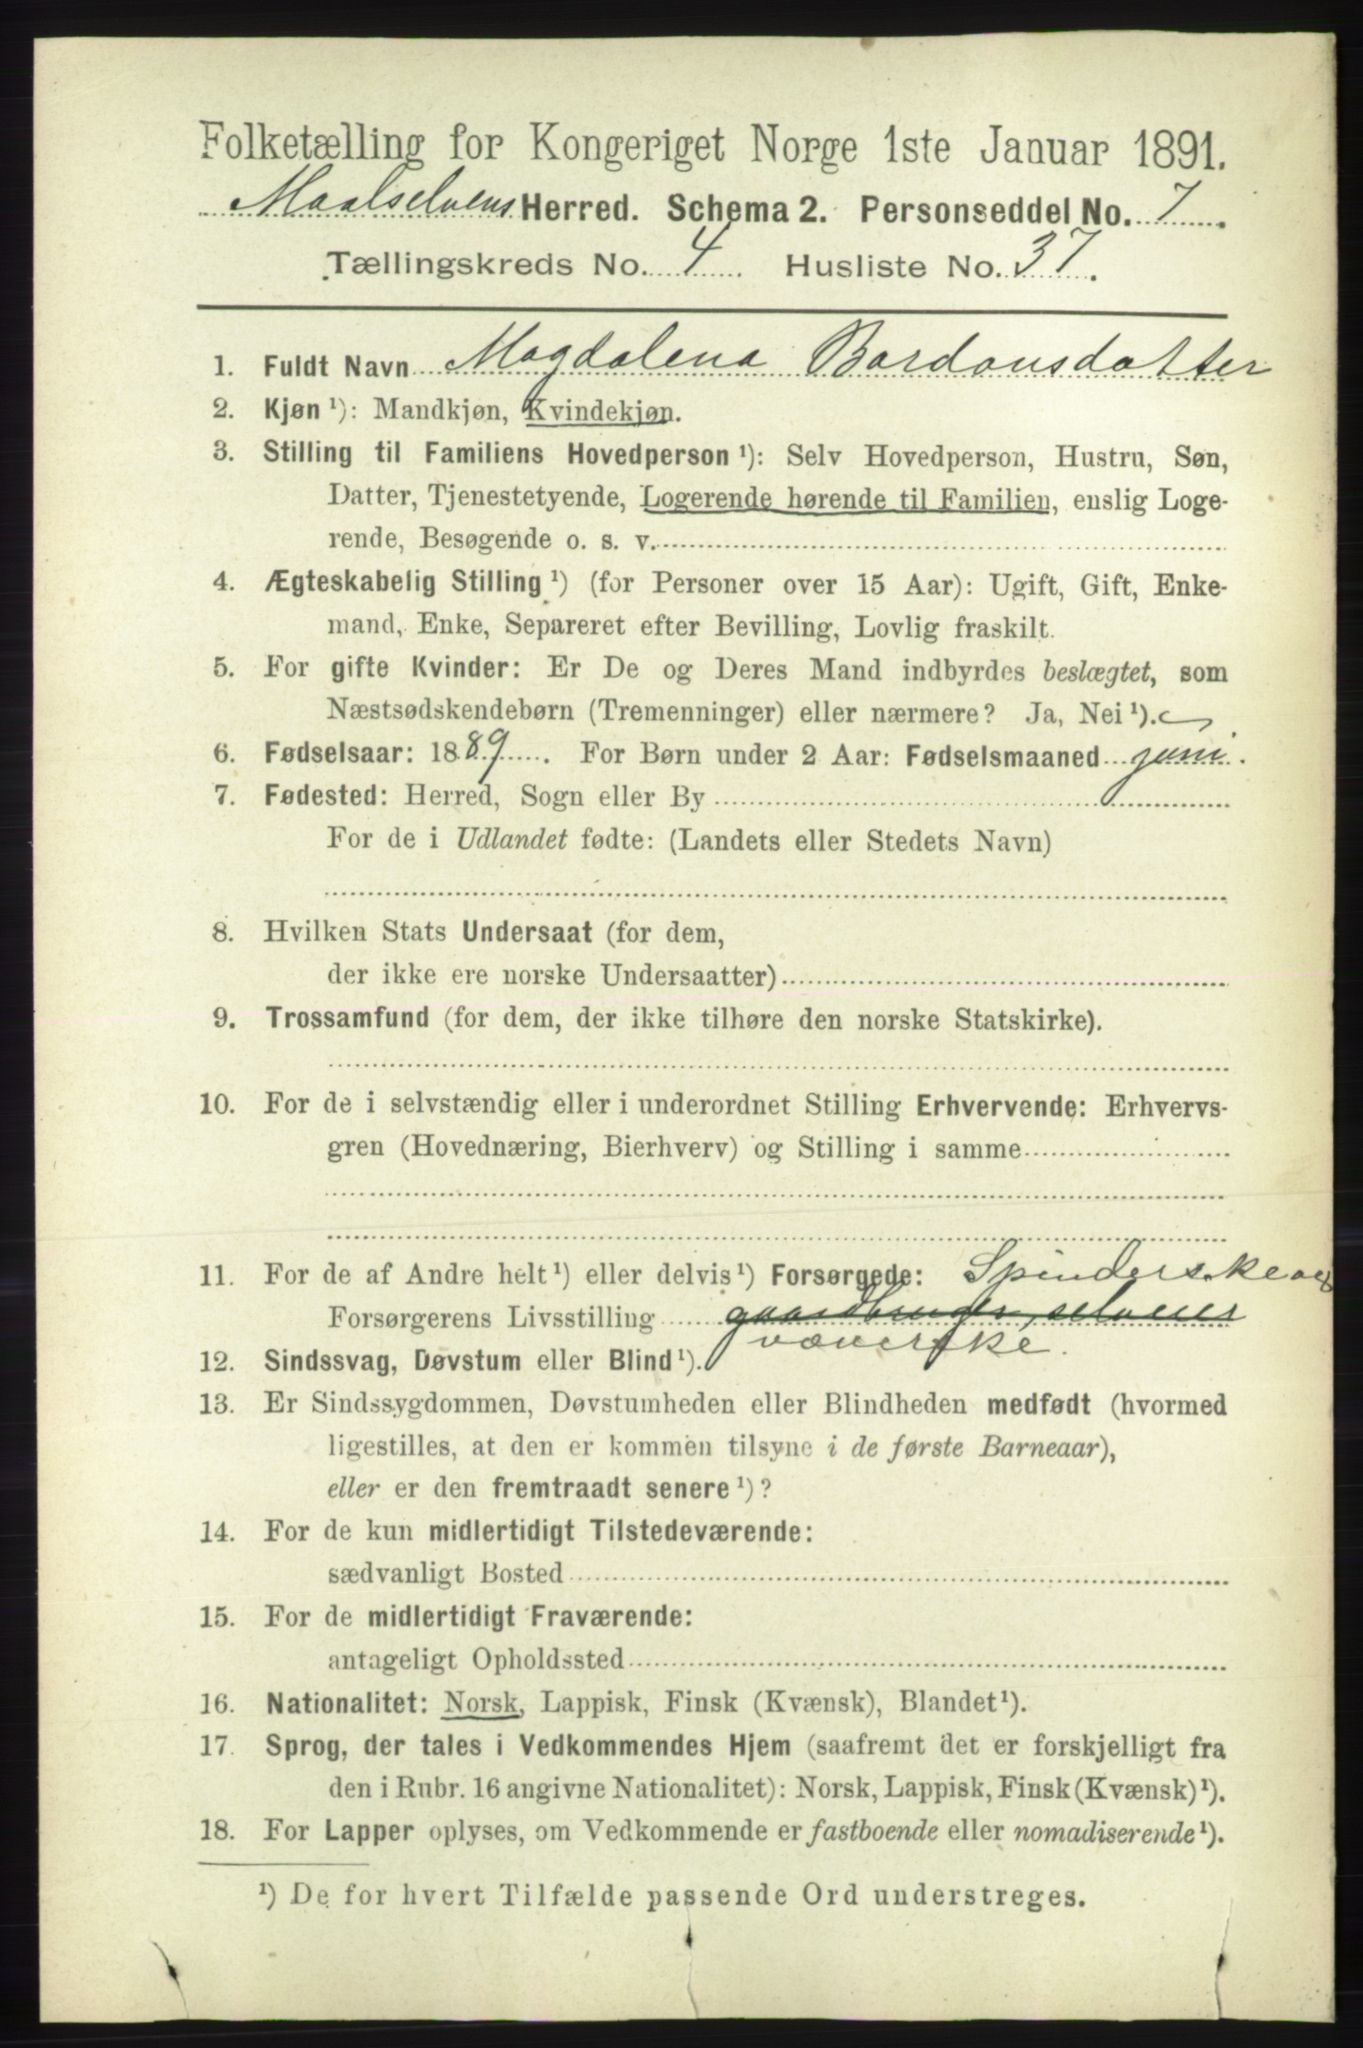 Folketælling for Kongeriget Norge 1ste Januar 1891.
Maalselvens Herred. Schema 2. Personseddel No. 7.
Tællingskreds No. 4. Husliste No. 37.
1. Fuldt Navn Magdalena Bardonsdatter
2. Kjøn ¹): Mandkjøn, Kvindekjøn.
3. Stilling til Familiens Hovedperson ¹): Selv Hovedperson, Hustru, Søn,
Datter, Tjenestetyende, Logerende hørende til Familien, enslig Loge-
rende, Besøgende o. s. v.
4. Ægteskabelig Stilling ¹) (for Personer over 15 Aar): Ugift, Gift, Enke-
mand, Enke, Separeret efter Bevilling, Lovlig fraskilt.
5. For gifte Kvinder: Er De og Deres Mand indbyrdes beslægtet, som
Næstsødskendebørn (Tremenninger) eller nærmere? Ja, Nei ¹).
6. Fødselsaar: 1889. For Børn under 2 Aar: Fødselsmaaned juni.
7. Fødested: Herred, Sogn eller By
For de i Udlandet fødte: (Landets eller Stedets Navn)
8. Hvilken Stats Undersaat (for dem,
der ikke ere norske Undersaatter)
9. Trossamfund (for dem, der ikke tilhøre den norske Statskirke).
10. For de i selvstændig eller i underordnet Stilling Erhvervende: Erhvervs-
gren (Hovednæring, Bierhverv) og Stilling i samme
11. For de af Andre helt ¹) eller delvis ¹) Forsørgede: Spinderske og
Forsørgerens Livsstilling gaardbruger, selveier
væverske.
12. Sindssvag, Døvstum eller Blind ¹).
13. Er Sindssygdommen, Døvstumheden eller Blindheden medfødt (hvormed
ligestilles, at den er kommen tilsyne i de første Barneaar),
eller er den fremtraadt senere ¹)?
14. For de kun midlertidigt Tilstedeværende:
sædvanligt Bosted
15. For de midlertidigt Fraværende:
antageligt Opholdssted
16. Nationalitet: Norsk, Lappisk, Finsk (Kvænsk), Blandet ¹).
17. Sprog, der tales i Vedkommendes Hjem (saafremt det er forskjelligt fra
den i Rubr. 16 angivne Nationalitet): Norsk, Lappisk, Finsk (Kvænsk) ¹).
18. For Lapper oplyses, om Vedkommende er fastboende eller nomadiserende ¹).
¹) De for hvert Tilfælde passende Ord understreges.